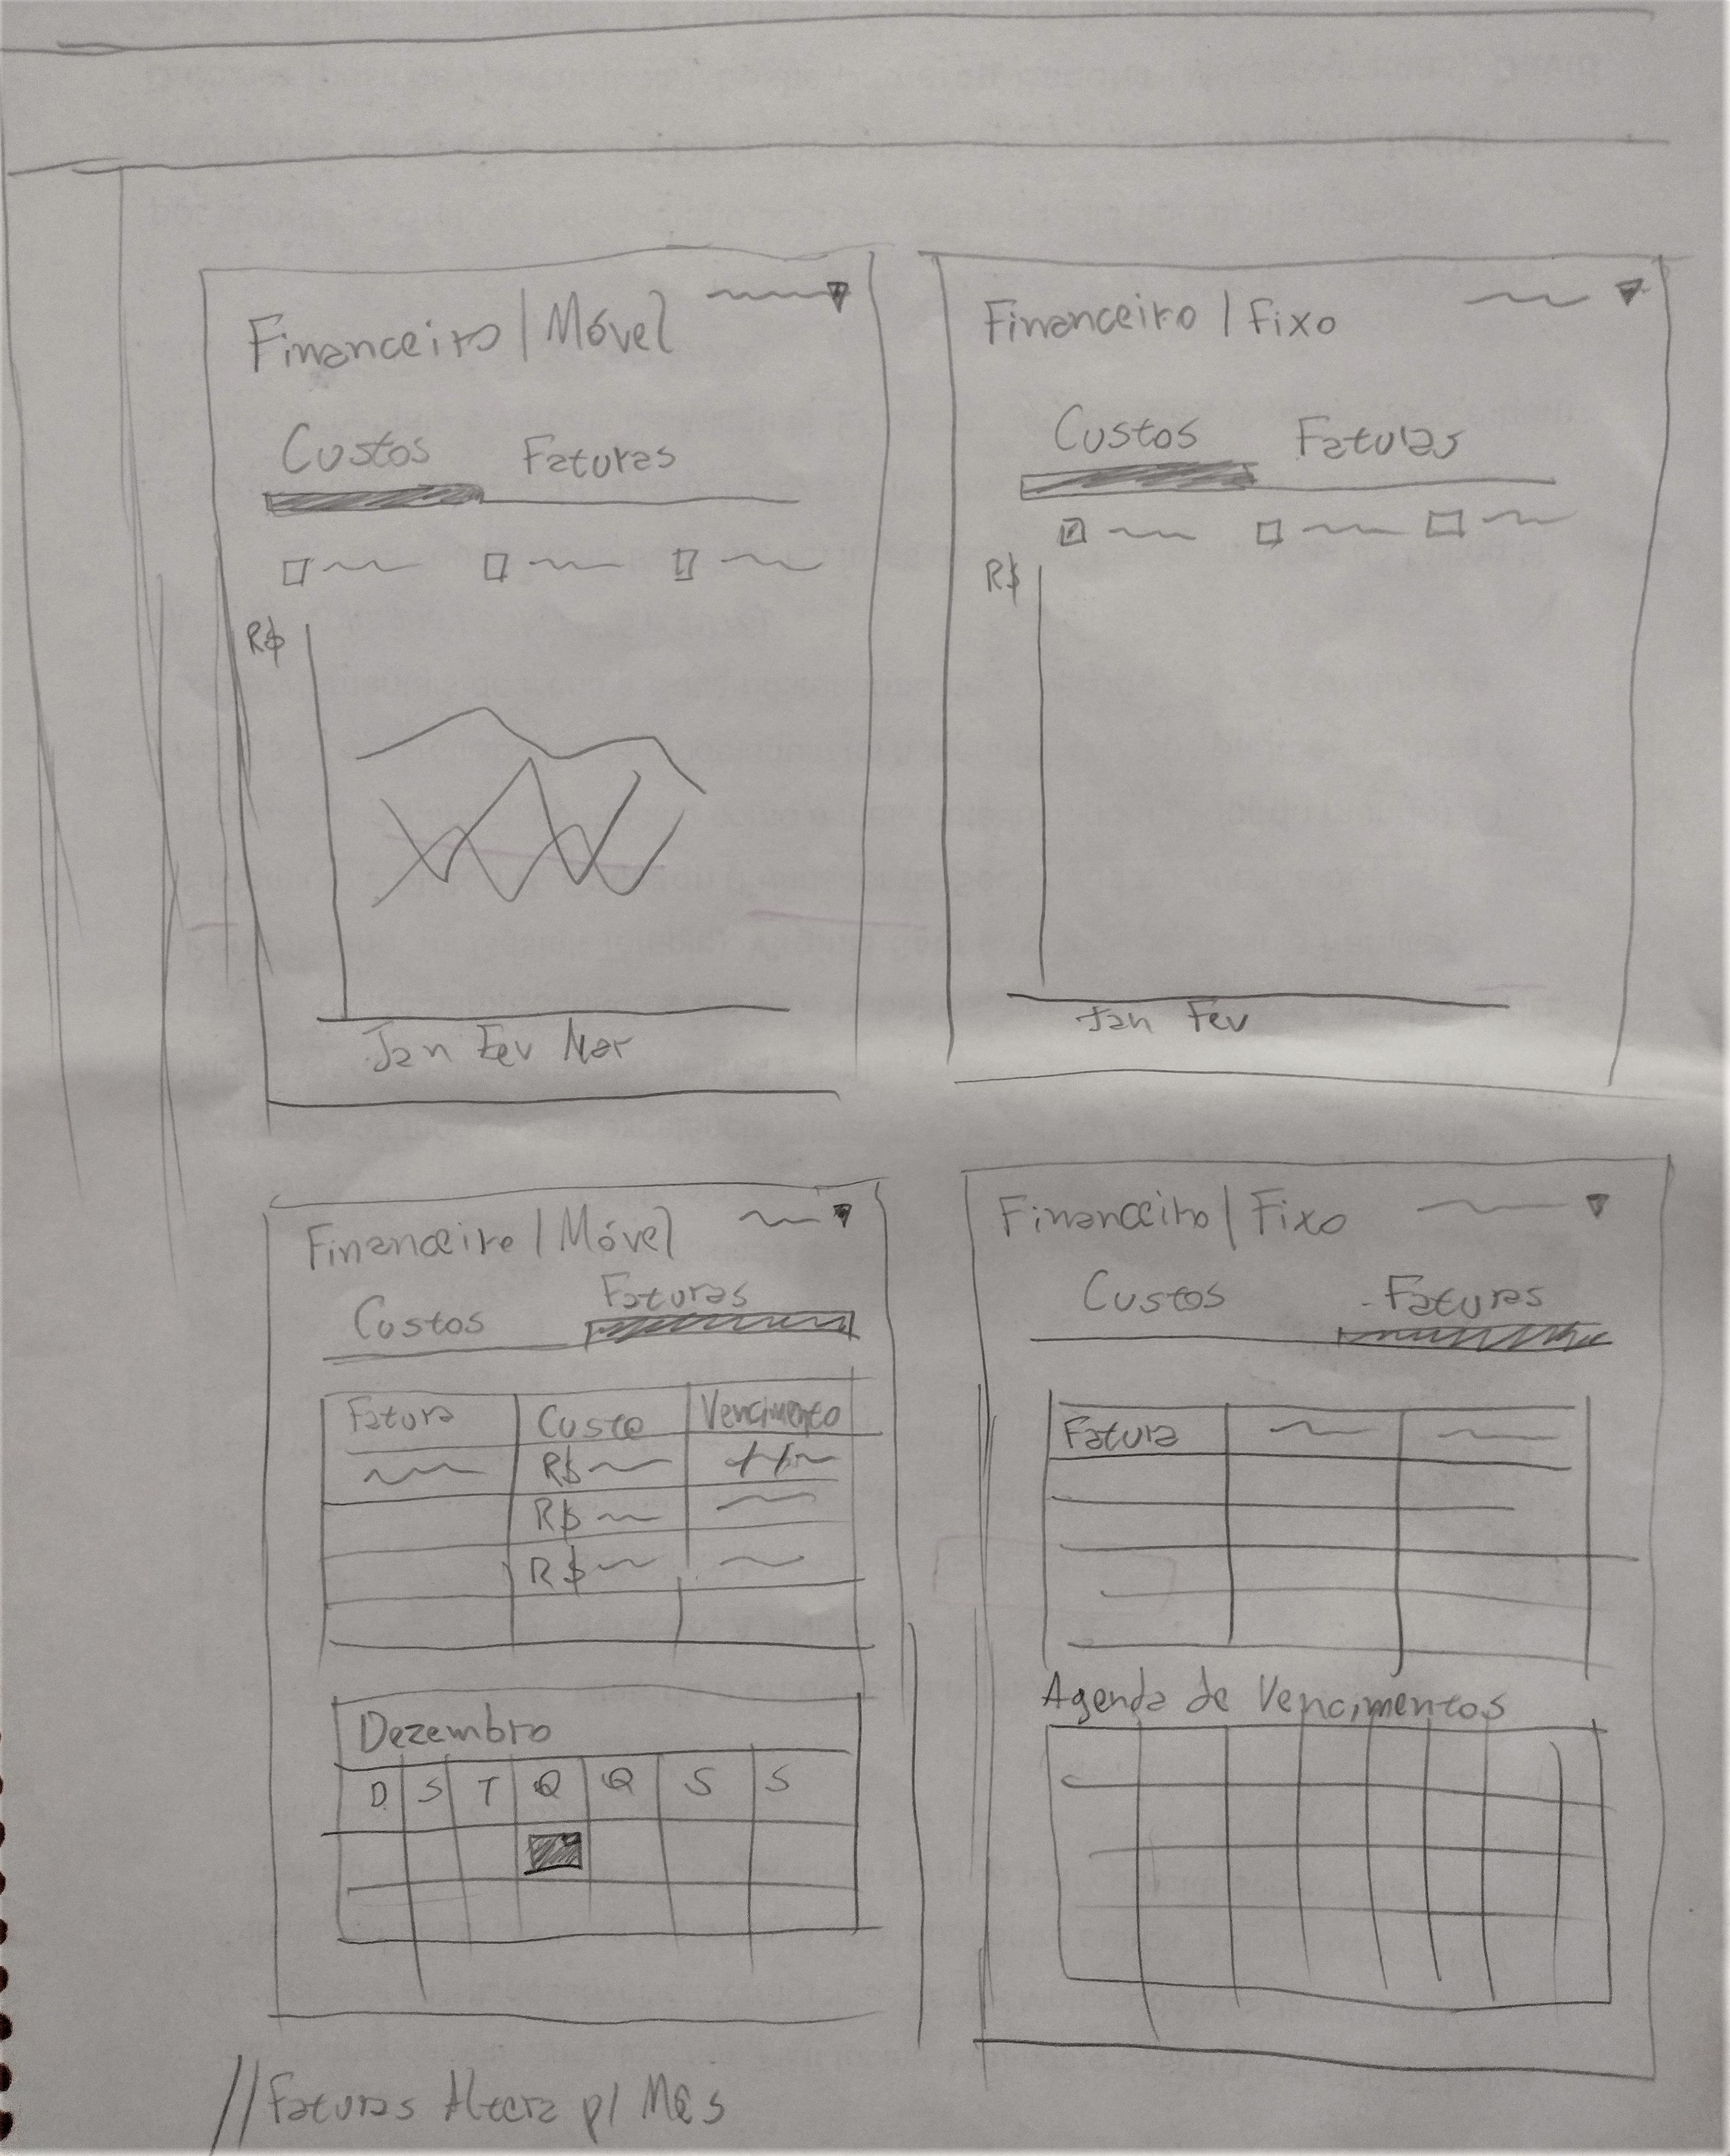 Financeiro | Móvel
Custos Faturas
R$
Jan Fev Mar
Financeiro | Fixo
Custos Faturas
R$
Jan Fev
Financeiro | Móvel
Custos Faturas
Fatura Custo Vencimento
R$
R$
R$
Dezembro
D S T Q Q S S
Financeiro | Fixo
Custos Faturas
Fatura
Agenda de Vencimentos
// Faturas Altera p/ Mês